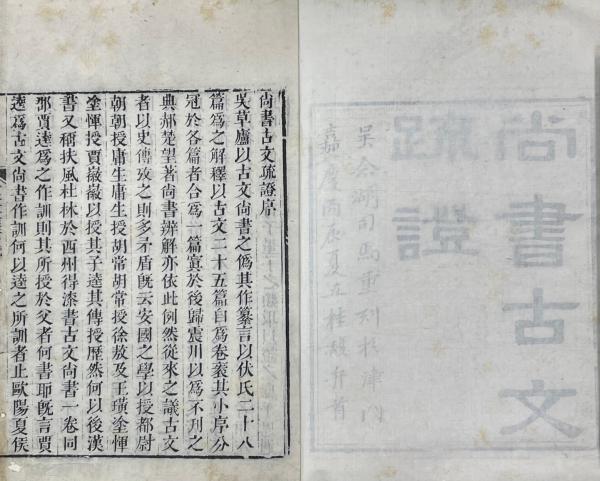 尚書古文
疏證
嘉慶丙辰夏
尚書古文疏證序
吳草廬以古文尚書之僞其作纂言以伏氏二十八
篇爲之解釋以古文二十五篇自爲卷裹其小序分
冠於各篇者合爲一篇寘於後歸震川以爲不刋之
典郝楚望著尚書辨解亦依此例然從來之議古文
者以史傳攷之則多矛盾旣云安國之學以授都尉
朝朝授庸生庸生授胡常胡常授徐敖及王璜塗惲
塗惲授賈徽徽以授其子逵其傳授歷然何以後漢
書又稱扶風杜林於西州得漆書古文尚書一卷同
郡賈逵爲之作訓則其所授於父者何書耶旣言賈
逵爲古文尚書作訓何以逵之所訓者止歐陽夏侯